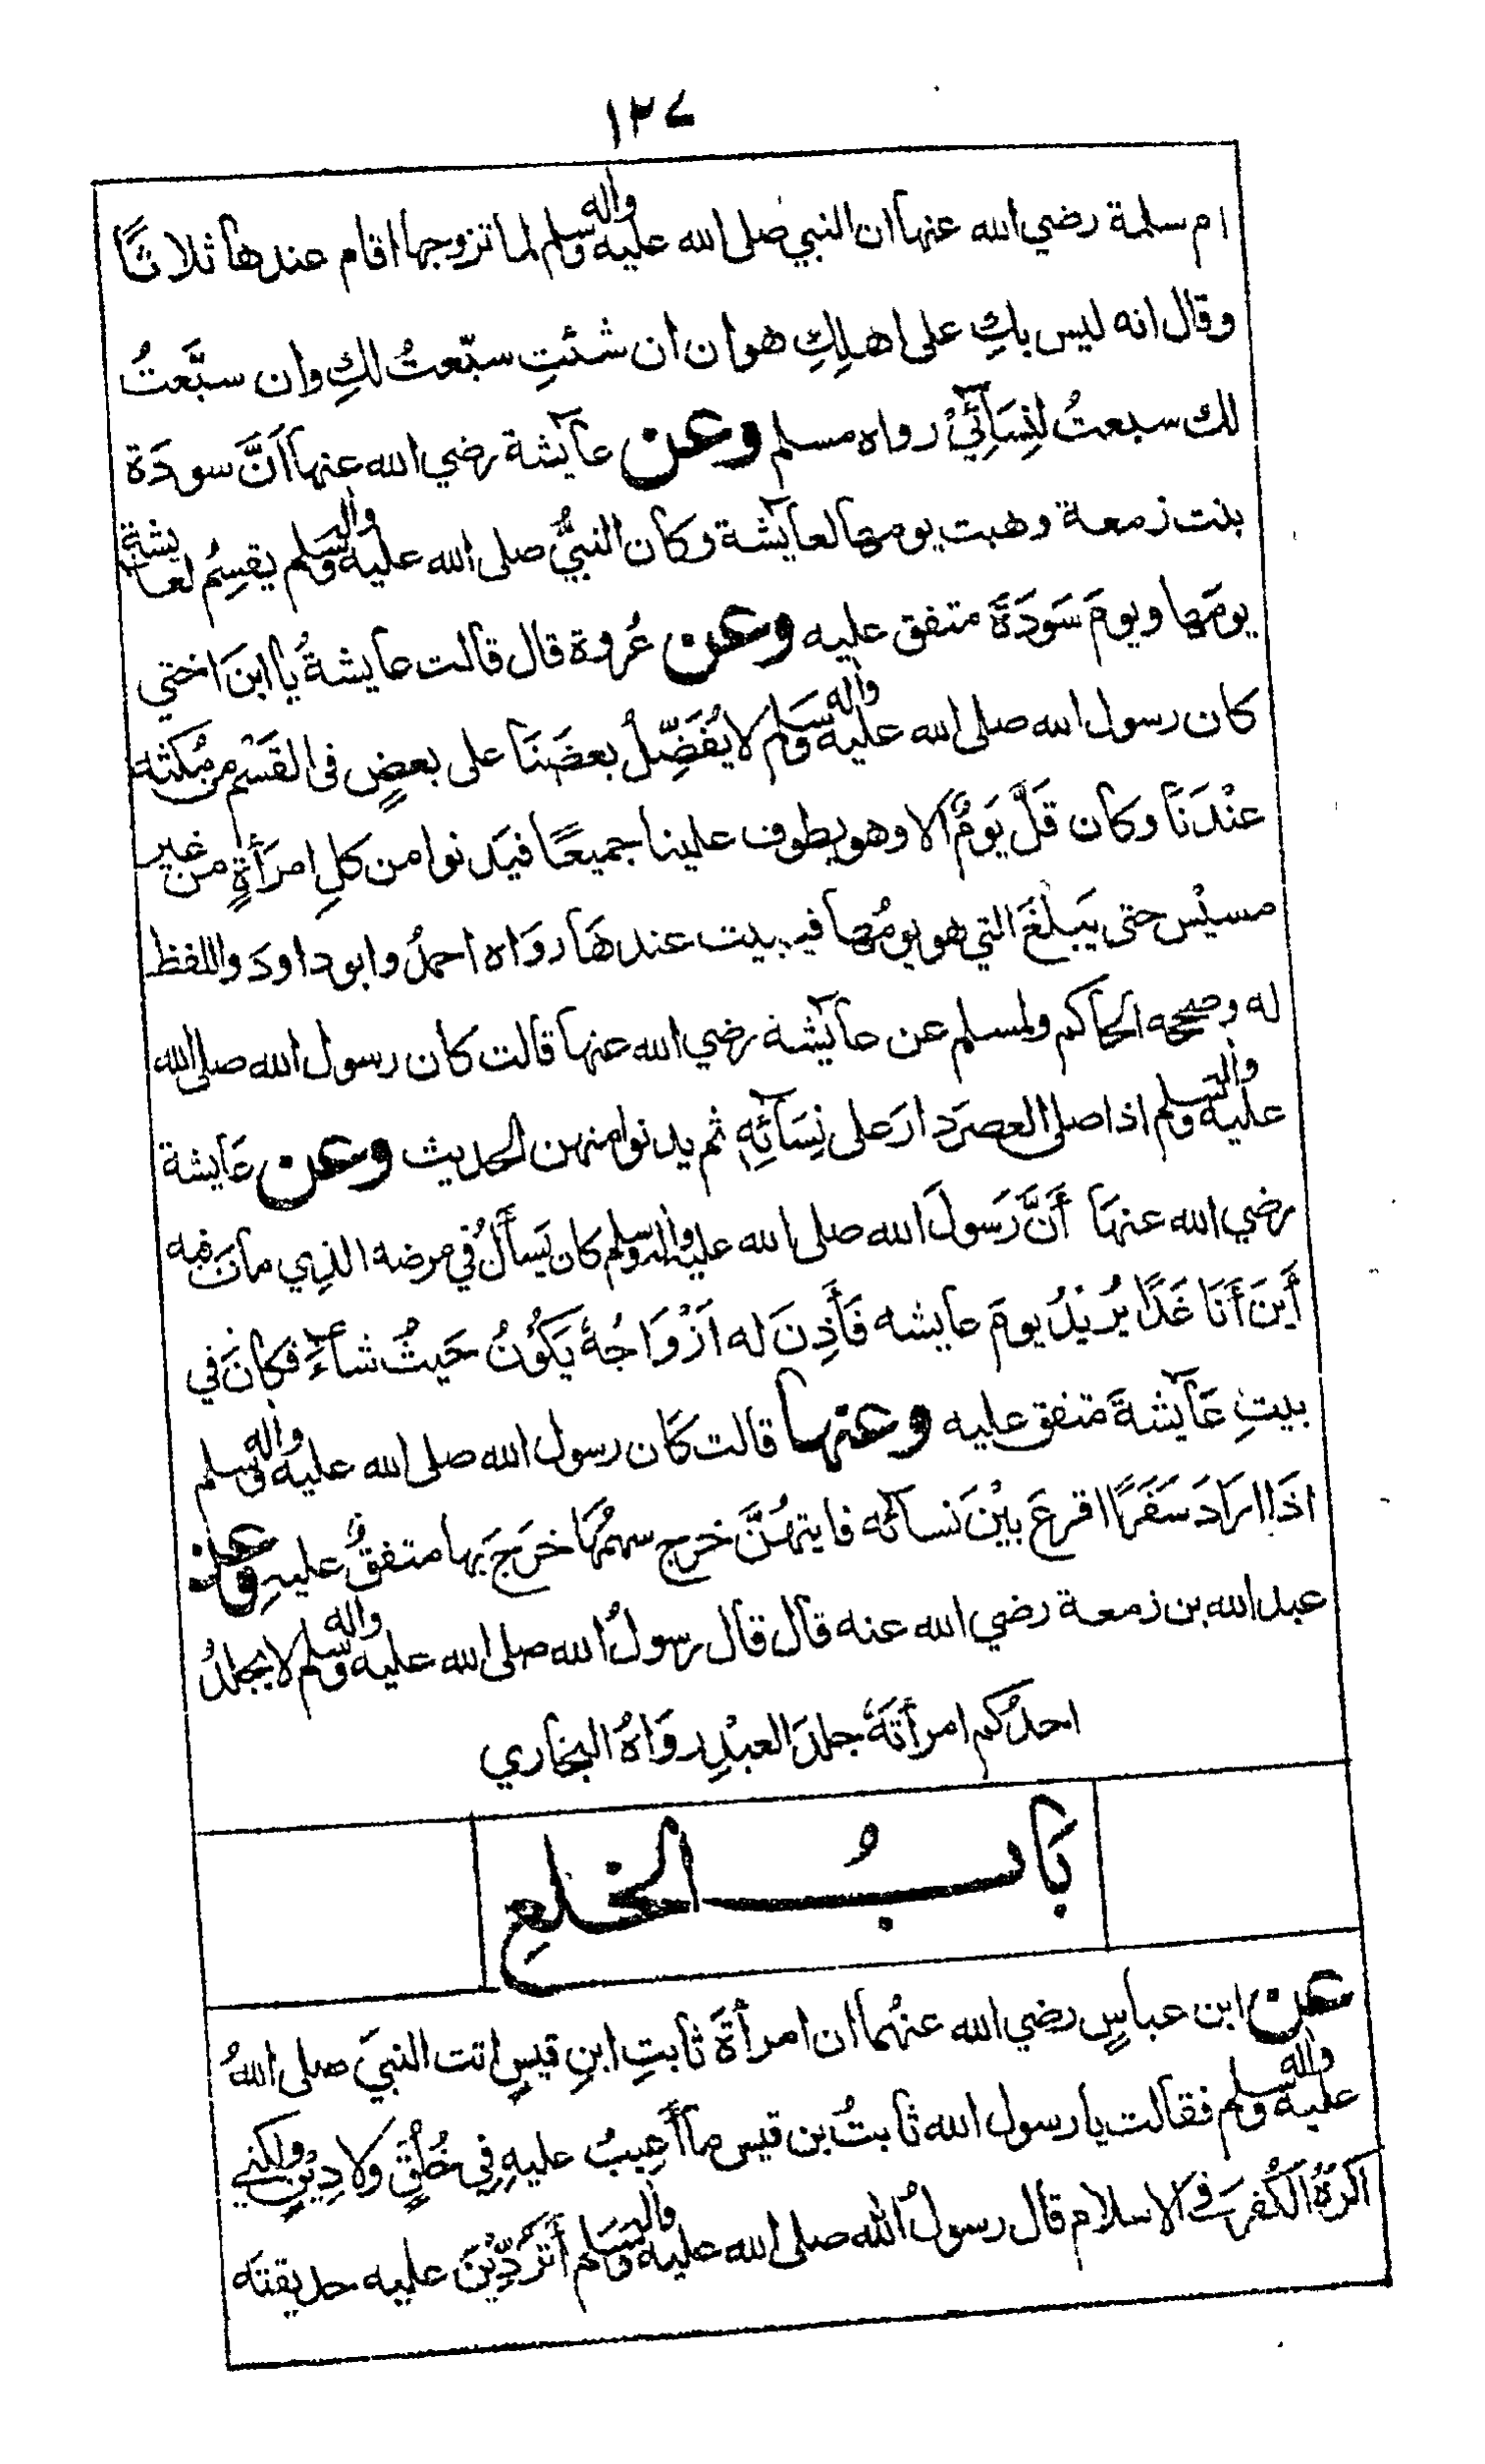 ١٢٧
ام سلمة رضي الله عنها ان النبي صلى الله عليه واله وسلم لما تزوجها اقام عندها ثلاثًا
وقال انه ليس بكِ على اهلِكِ هوان ان شئتِ سبّعتُ لكِ وان سبَّعتُ
لك سبعتُ لنِسَآئِيْ رواه مسلم وعن عآيشة رضي الله عنها اَنَّ سودَة
بنت زمعة وهبت يومها لعآيشة وكان النبيُّ صلى الله عليه واله وسلم يقسِمُ لعايشة
يومَها ويومَ سَودَةَ متفق عليه وعن عُروة قال قالت عايشةُ يا ابنَ اختي
كان رسول الله صلى الله عليه واله وسلم لا يُفَضِّلُ بعضَنَا على بعضٍ فى القَسْمِ من مُكثه
عنْدَنَا وكان قَلَّ يَومٌ الا وهو يطوف علينا جميعًا فيَدنوا من كلِ امرَأةٍ من غير
مسيْس حتى يَبلغَ التي هو يومُها فيبيت عندهَا روَاه احمدُ وابو داودَ واللفظ
له وصححه الحاكم ولمسلم عن عآيشة رضي الله عنها قالت كان رسول الله صلى الله
عليه واله وسلم اذا صلى العصرَ دارَ على نِسَآئِهِ ثم يدنوا منهن الحديث وعن عَايشة
رضي الله عنهَا أَنَّ رَسولَ الله صلى الله عليه واله وسلم كان يَسأَلُ في مرضه الذِي ماتَ فيه
أَينَ أَنَا غَدًا يُريْدُ يومَ عايشه فَأَذِنَ له اَزْوَاجُهُ يَكُونُ حَيثُ شآءَ فكانَ في
بيتِ عَآيشةَ متفق عليه وعنها قالت كَان رسول الله صلى الله عليه واله وسلم
اذَا ارَادَ سَفَرًا اقرعَ بيْنَ نسآئه فايتهُنَّ خرج سهمُهَا خرَجَ بها متفقٌ عليهِ وعن
عبد الله بن زمعة رضي الله عنه قال قال رسولُ الله صلى الله عليه واله وسلم لا يجلدُ
احدُكم امرأتَهُ جلدَ العبْدِ روَاهُ البخاري
بَابُ الخلعِ
عن ابن عباسٍ رضي الله عنهُما ان امرأةَ ثابتِ ابنِ قيسٍ اتت النبيَ صلى اللهُ
عليه واله وسلم فقالت يا رسول الله ثابتُ بن قيس ما أَعِيبُ عليهِ فِي خُلُقٍ ولا دِيْنٍ ولكني
اكرَهُ الكُفرَ فى الاسلام قال رسولُ الله صلى الله عليه واله وسلم أَتَرُدِّيْنَ عليه حديقتَه